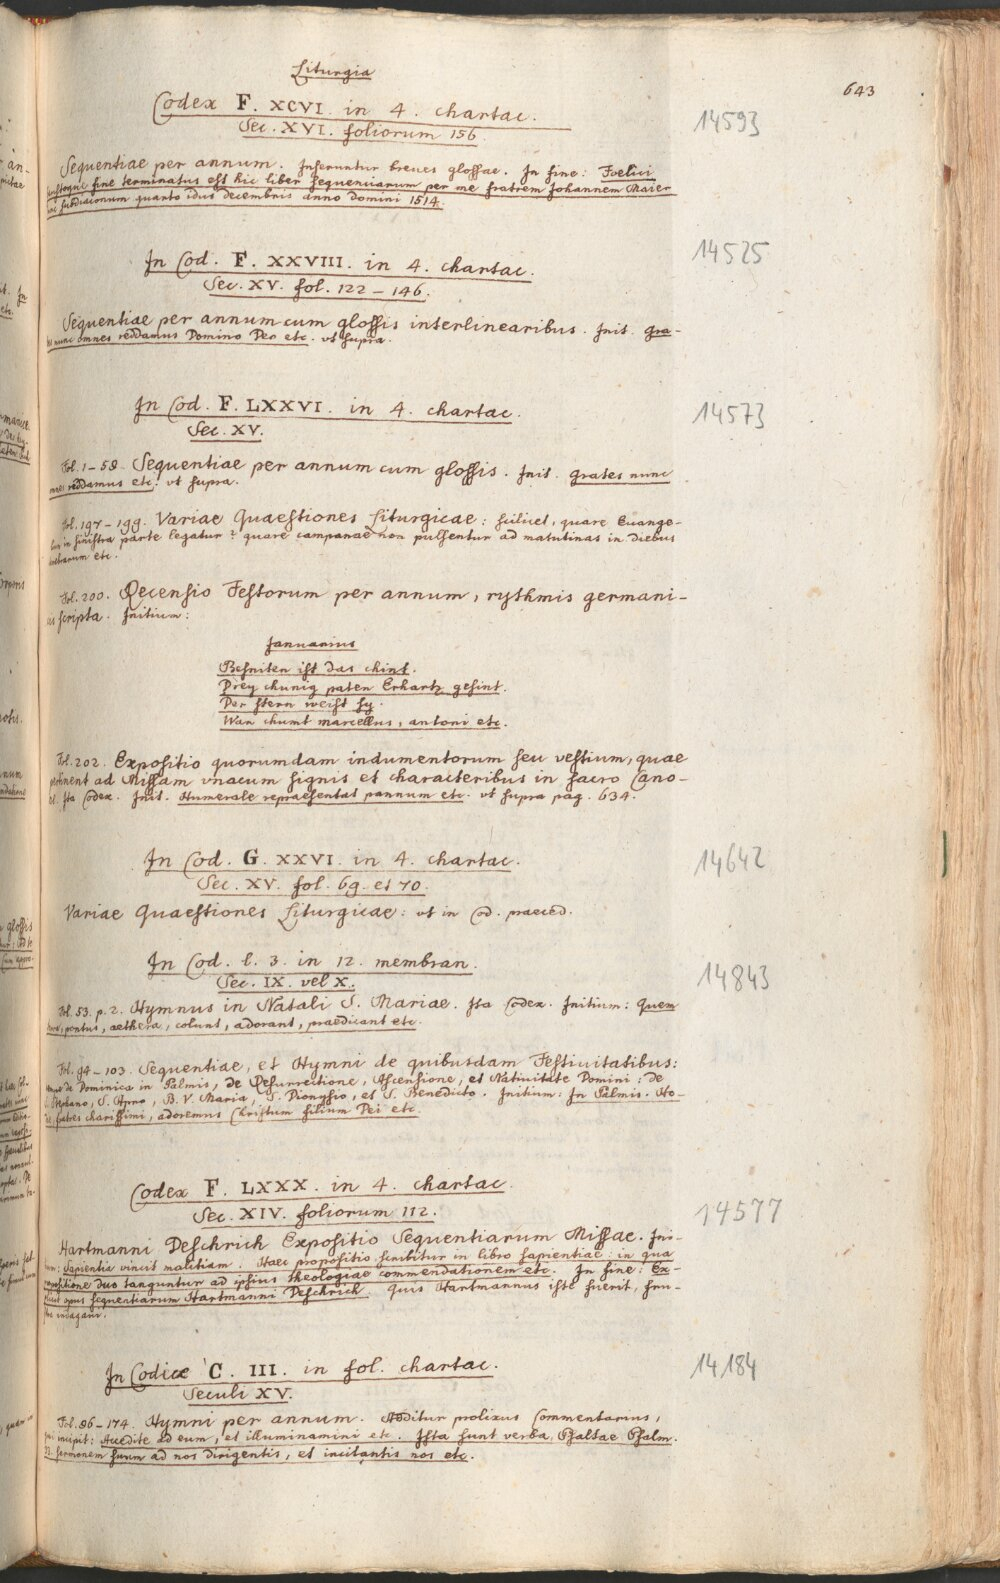 Liturgia
643
Codex F. XCVI. in 4. chartac.
14593
Sec. XVI. foliorum 156.
Sequentiae per annum. Inseruntur breves glossae. In fine: Foelici
fine terminatus est hic liber sequentiarum per me fratrem Johannem Maier
subdiaconum quarto idus decembris anno domini 1514.
In Cod. F. XXVIII. in 4. chartac.
14525
Sec. XV. fol. 122 – 146.
Sequentiae per annum cum glossis interlinearibus. Init. Gra-
nunc omnes reddamus Domino Deo etc. ut supra.
In Cod. F. LXXVI. in 4. chartac.
14573
Sec. XV.
Fol. 1 – 58. Sequentiae per annum cum glossis. Init. grates nunc
reddamus etc: ut supra.
Fol. 197 – 199. Variae Quaestiones Liturgicae: scilicet, quare Evange-
in sinistra parte legatur? quare campanae non pulsentur ad matutinas in diebus
etc.
Fol. 200. Recensio Festorum per annum, rythmis germani-
scripta. Initium:
Januarius
Besniten ist das chint.
Drey chunig paten Erhartz gesint.
Der stern weist sy.
Wan chumt marcellus, antoni etc.
Fol. 202. Expositio quorumdam indumentorum seu vestium, quae
pertinent ad Missam unacum signis et characteribus in sacro Cano-
Ita Codex. Init. Humerale repraesentat pannum etc. ut supra pag. 634.
In Cod. G. XXVI. in 4. chartac.
14642
Sec. XV. fol. 69. et 70.
Variae Quaestiones Liturgicae: ut in Cod. praeced.
In Cod. l. 3. in 12. membran.
14843
Sec. IX. vel X.
Fol. 53. p. 2. Hymnus in Natali S. Mariae. Ita Codex. Initium: Quem
pontus, aethera, colunt, adorant, praedicant etc.
Fol. 94 – 103. Sequentiae, et Hymni de quibusdam Festivitatibus:
de Dominica in Palmis, de Resurrectione, Ascensione, et Nativitate Domini: de
Stephano, S. Apro, B. V. Maria, S. Dionysio, et S. Benedicto. Initium: In Palmis. Ho-
fratres charissimi, adoremus Christum filium Dei etc.
Codex F. LXXX. in 4. chartac.
14577
Sec. XIV. foliorum 112.
Hartmanni Deschrich Expositio Sequentiarum Missae. Ini-
tium: Sapientia vincit malitiam. Haec propositio scribitur in libro sapientiae: in qua
propositione duo tanguntur ad ipsius theologiae commendationem etc. In fine: Ex-
plicit opus sequentiarum Hartmanni Deschrich. Quis Hartmannus iste fuerit, fru-
indagavi.
In Codice C. III. in fol. chartac.
14184
Seculi XV.
Fol. 86 – 174. Hymni per annum. Additur prolixus Commentarius,
qui incipit: Accedite ad eum, et illuminamini etc. Ista sunt verba Psaltae Psalm.
33. sermonem suum ad nos dirigentis, et incitantis nos etc.